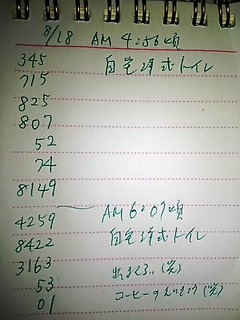 8/18 AM 4:56頃
345 自宅洋式トイレ
715
825
807
52
74
8149
4259 AM 6:07頃
8422 自宅洋式トイレ
3163
53 (笑)
01 コーヒーの (笑)